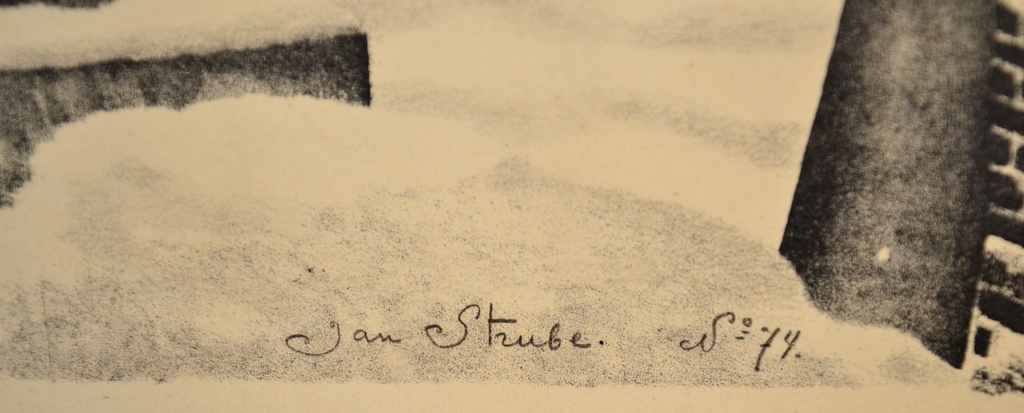 Jan Strube. Nº 74.